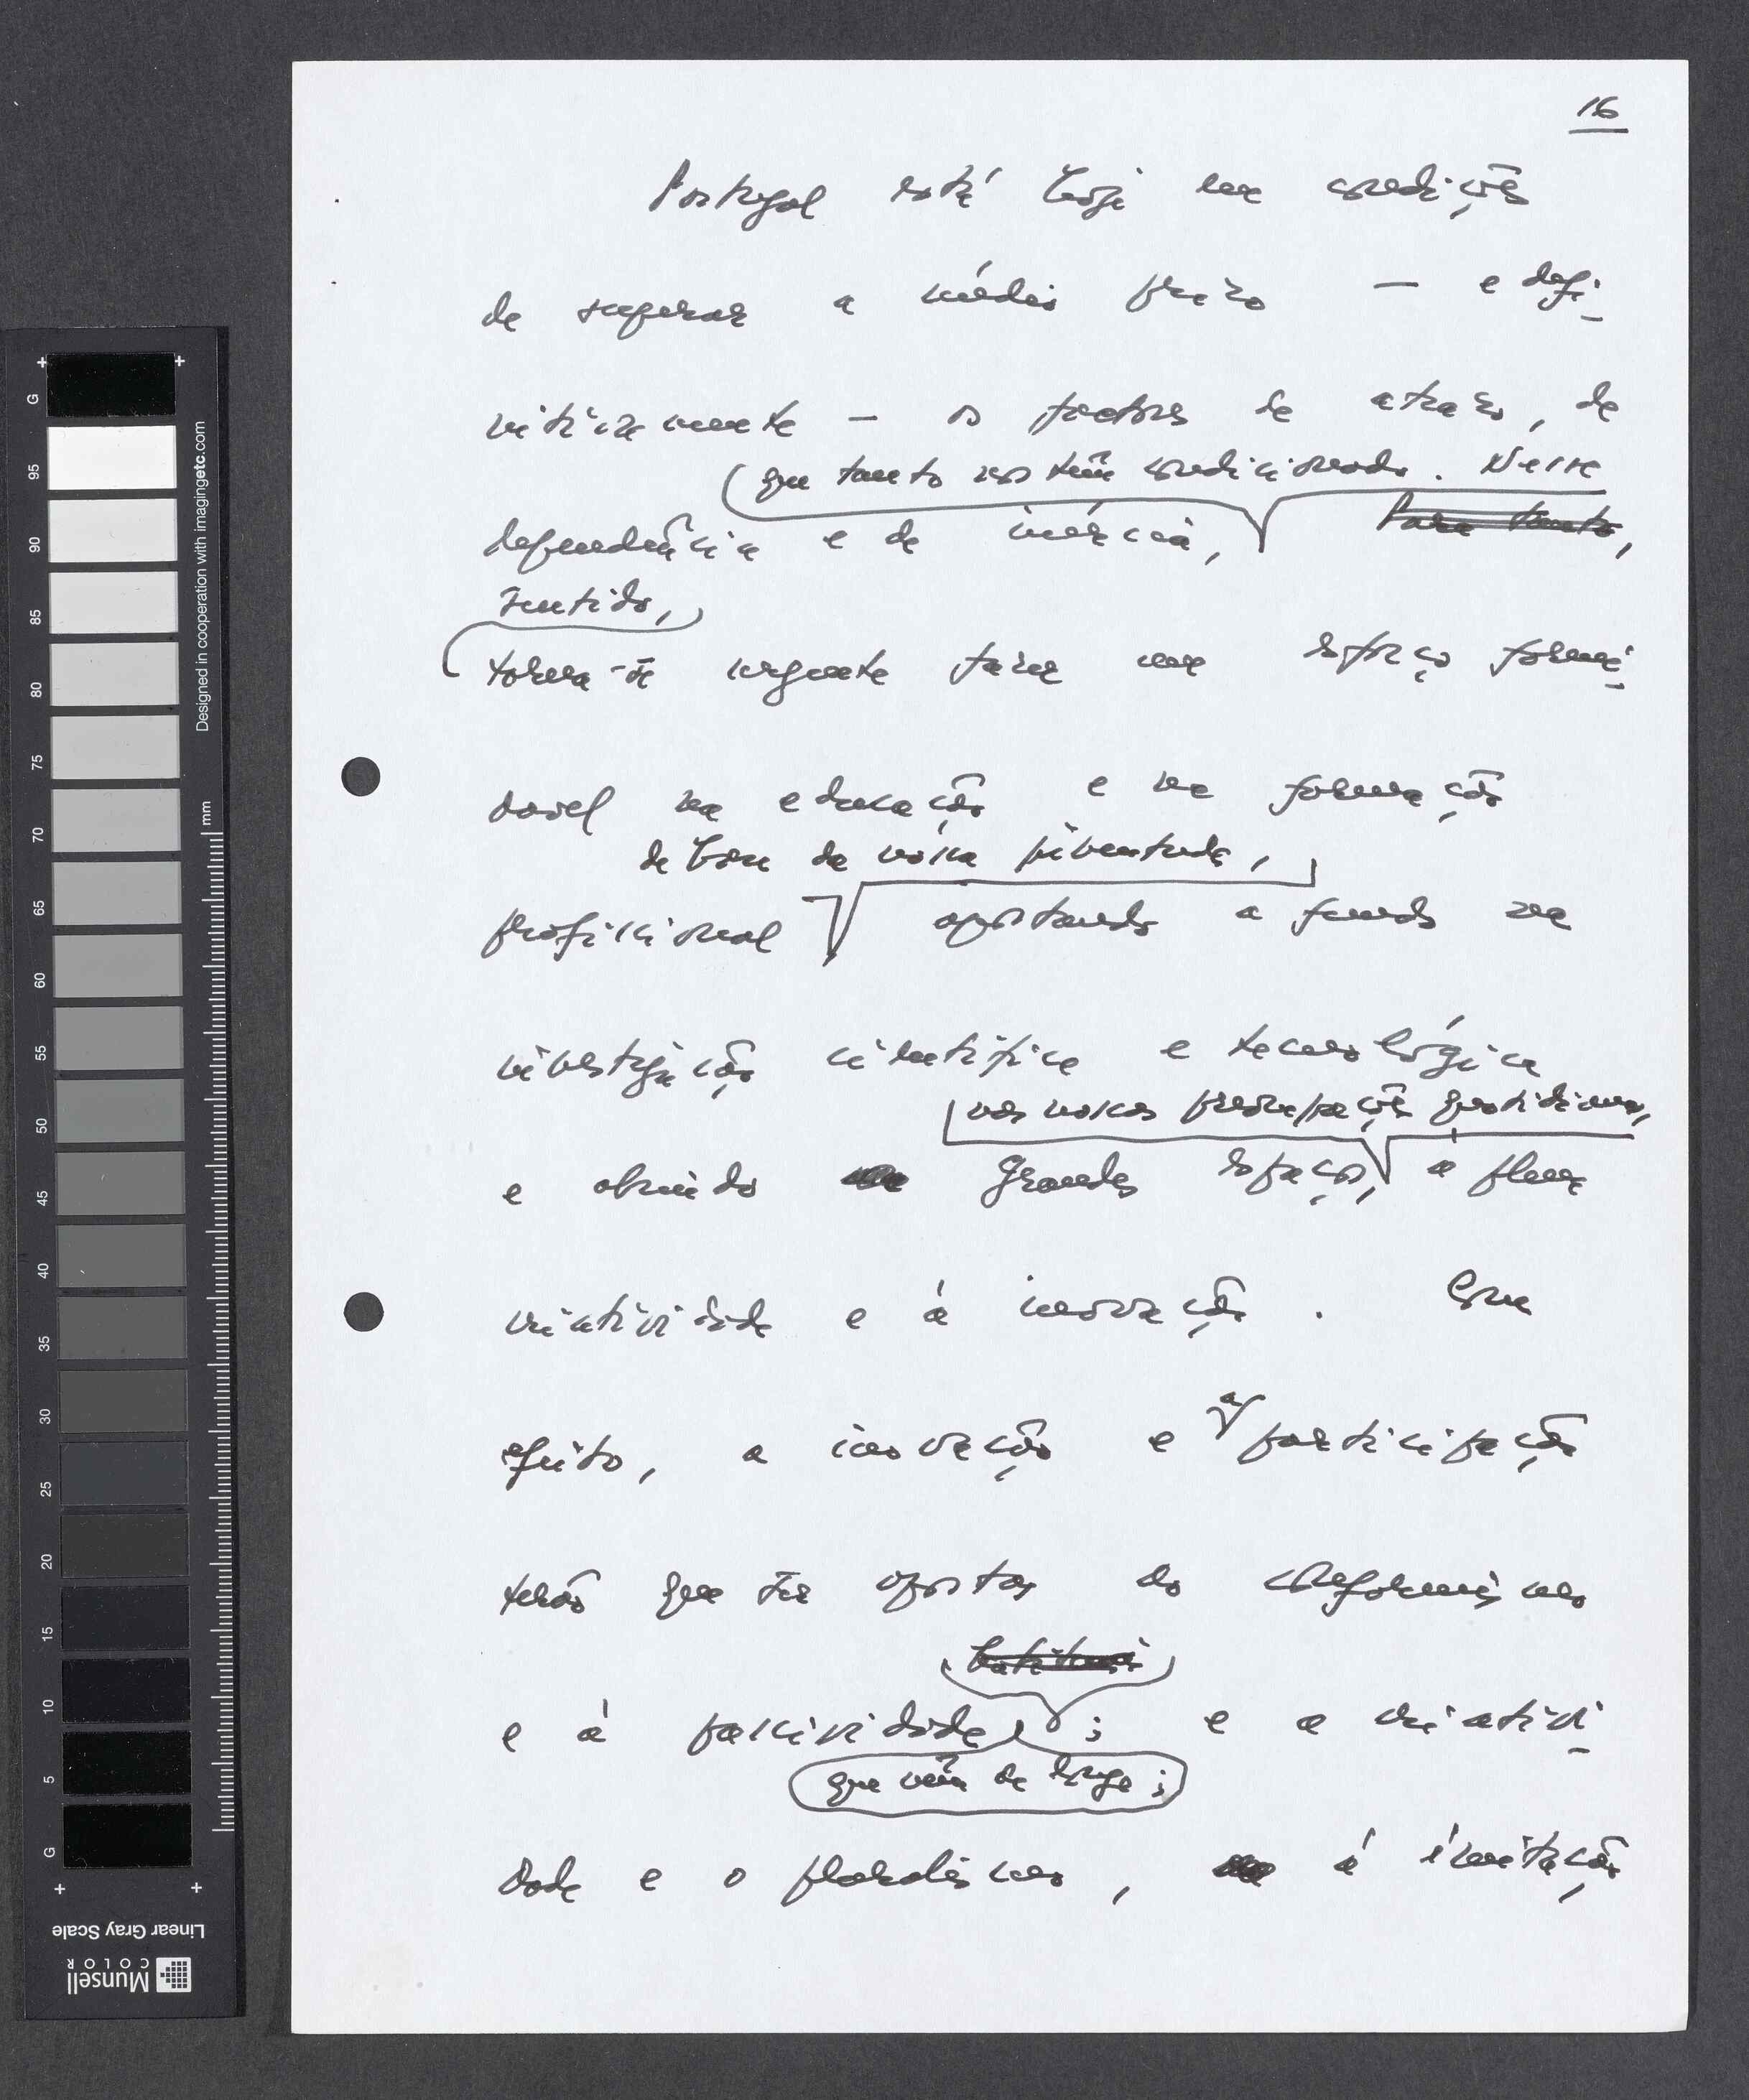 16
Portugal está hoje em condições
de superar a médio prazo — e defi-
nitivamente — os factores de atraso, de
que tanto nos têm condicionado. Nesse
dependência e de inércia, Para tanto,
sentido,
torna-se urgente fazer um esforço formi-
dável na educação e na formação
de base da nossa juventude,
profissional apostando a fundo na
investigação científica e tecnológica
nas nossas preocupações quotidianas,
e abrindo grandes espaços, à
criatividade e à inovação. Com
efeito, a inovação e a participação
terão que ser opostas ao conformismo
e à passividade, ; e a criativi-
que vêm de longe;
dade e o pluralismo, à imitação
G
95
90
85
80
75
70
65
60
55
50
45
40
35
30
25
20
15
10
5
G
mm
Designed in cooperation with imagingetc.com
Linear Gray Scale
Munsell
COLOR